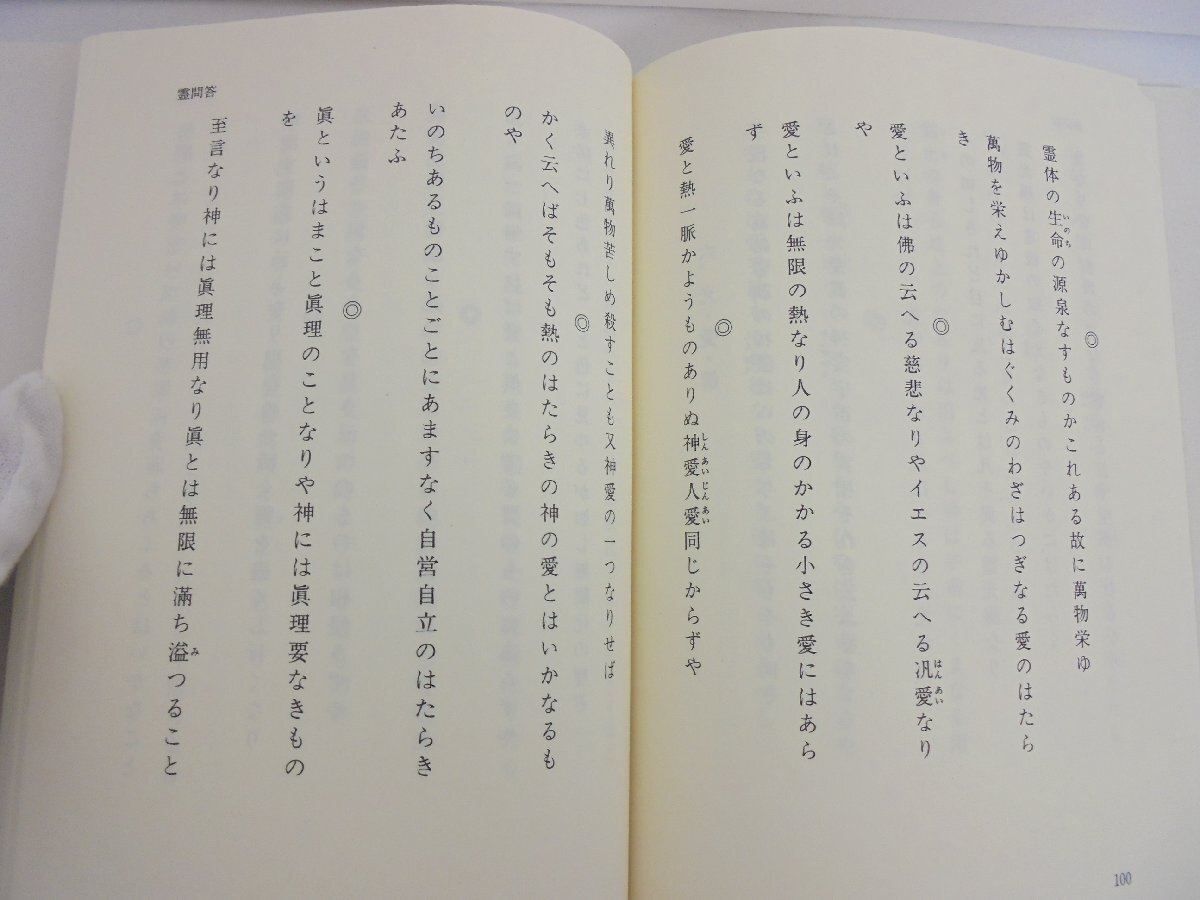 霊体の生命の源泉なすものかこれある故に萬物栄ゆ
いのち
◎
萬物を栄えゆかしむはぐくみのわざはつぎなる愛のはたら
き
愛といふは佛の云へる慈悲なりやイエスの云へる汎愛なり
はんあい
や
◎
愛といふは無限の熱なり人の身のかかる小さき愛にはあら
ず
愛と熱一脈かようものありぬ神愛人愛同じからずや
しんあいじんあい
◎
100
異れり萬物苦しめ殺すことも又神愛の一つなりせば
◎
かく云へばそもそも熱のはたらきの神の愛とはいかなるも
のや
いのちあるものことごとにあますなく自営自立のはたらき
あたふ
◎
眞というはまこと眞理のことなりや神には眞理要なきもの
を
至言なり神には眞理無用なり眞とは無限に満ち溢つること
み
霊問答